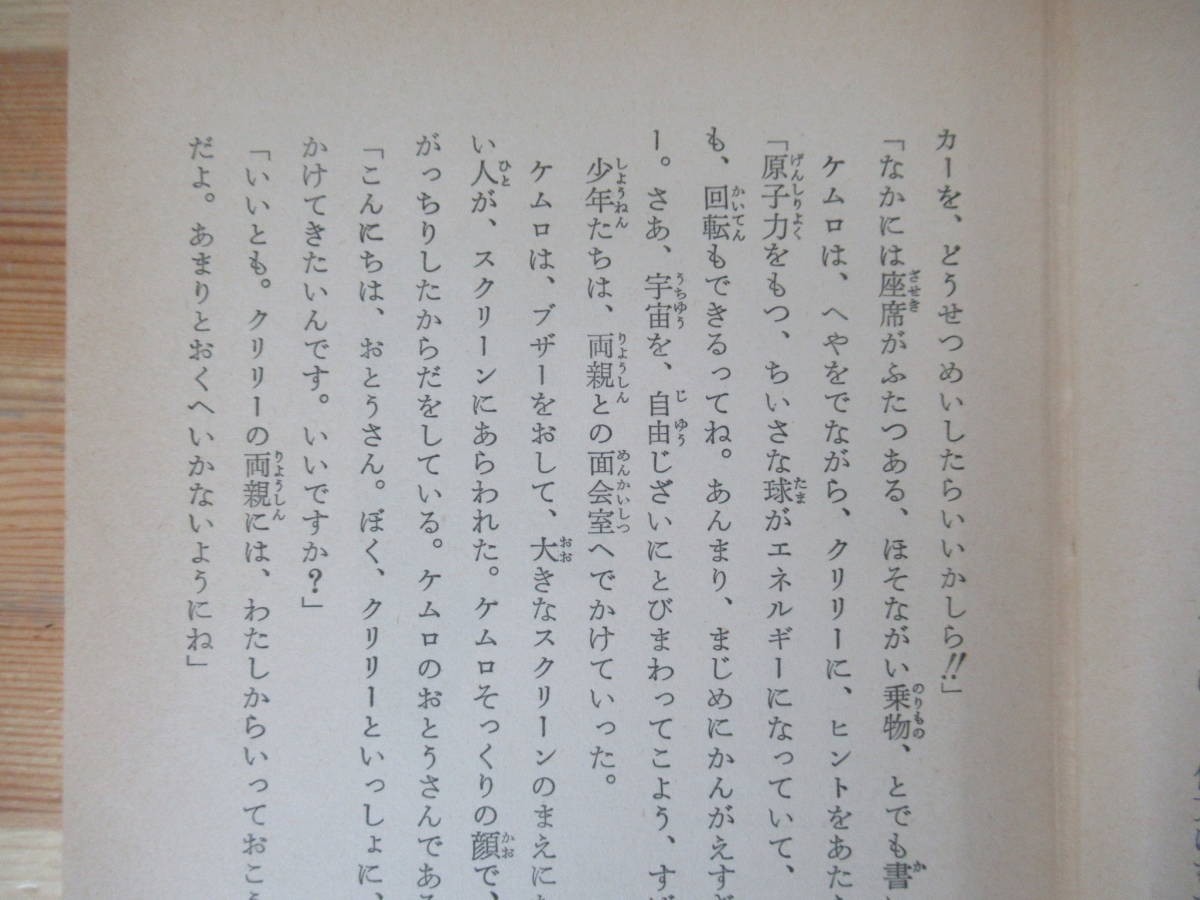 カーを、どうせつめいしたらいいかしら!!」
「なかには座席がふたつある、ほそながい乗物、とでも書
ケムロは、へやをでながら、クリリーに、ヒントをあた
「原子力をもつ、ちいさな球がエネルギーになっていて、
も、回転もできるってね。あんまり、まじめにかんがえす
ー。さあ、宇宙を、自由じざいにとびまわってこよう、す
少年たちは、両親との面会室へでかけていった。
ケムロは、ブザーをおして、大きなスクリーンのまえに
い人が、スクリーンにあらわれた。ケムロそっくりの顔で、
がっちりしたからだをしている。ケムロのおとうさんである
「こんにちは、おとうさん。ぼく、クリリーといっしょに、
かけてきたいんです。いいですか?」
「いいとも。クリリーの両親には、わたしからいっておこう
だよ。あまりとおくへいかないようにね」